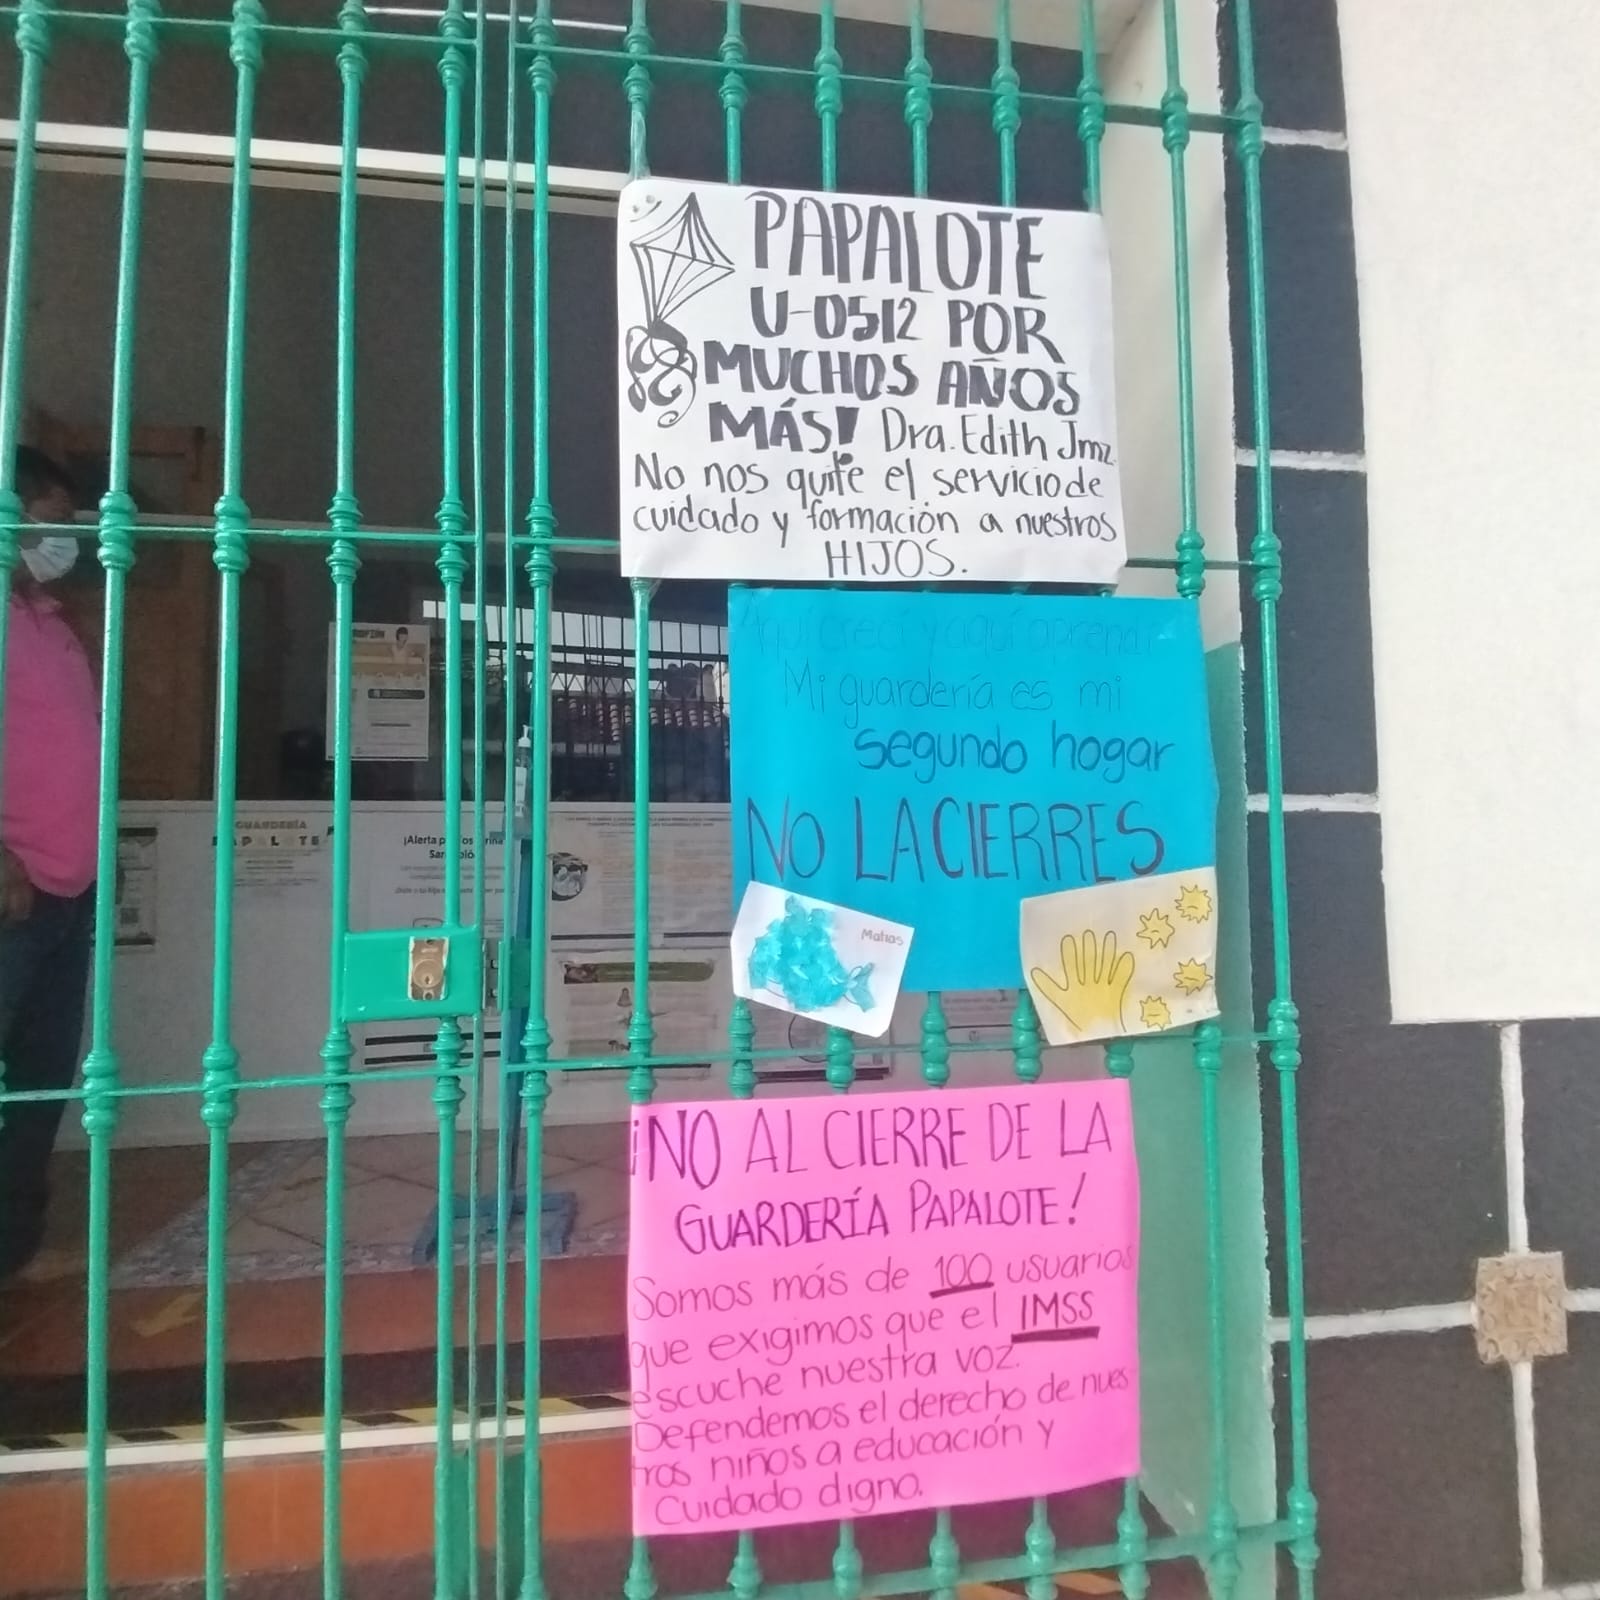 PAPALOTE
U-0512 POR
MUCHOS AÑOS
MÁS! Dra. Edith Jmz.
No nos quite el servicio de
cuidado y formación a nuestros
HIJOS.
Aquí crecí y aquí aprendí
Mi guardería es mi
segundo hogar
NO LA CIERRES
Matias
¡NO AL CIERRE DE LA
GUARDERÍA PAPALOTE!
Somos más de 100 usuarios
que exigimos que el IMSS
escuche nuestra voz.
Defendemos el derecho de nues-
tros niños a educación y
Cuidado digno.
GUARDERÍA
PAPALOTE
¡Alerta